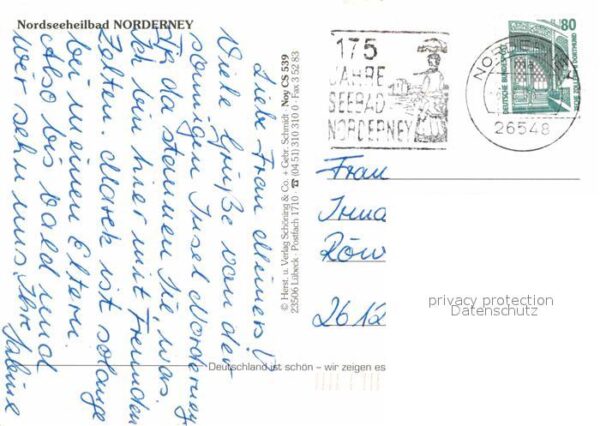 Nordseeheilbad NORDERNEY
Liebe Frau Meiners!
Viele Grüße von der
sonnigen Insel Norderney.
Tja, da staunen Sie, was.
Ich bin hier mit Freunden
Zelten. Marek ist solange
bei meinen Eltern.
Also bis bald und
wir sehn uns, Ihre Sabine
© Herst. u. Verlag Schöning & Co. + Gebr. Schmidt Noy CS 539
23506 Lübeck · Postfach 1710 · ☎ (04 51) 310 310 0 · Fax 3 52 83
175
JAHRE
SEEBAD
NORDERNEY
NORDERNEY
26548
80
DEUTSCHE BUNDESPOST
Frau
Irma
Röw
2612
privacy protection
Datenschutz
Deutschland ist schön – wir zeigen es